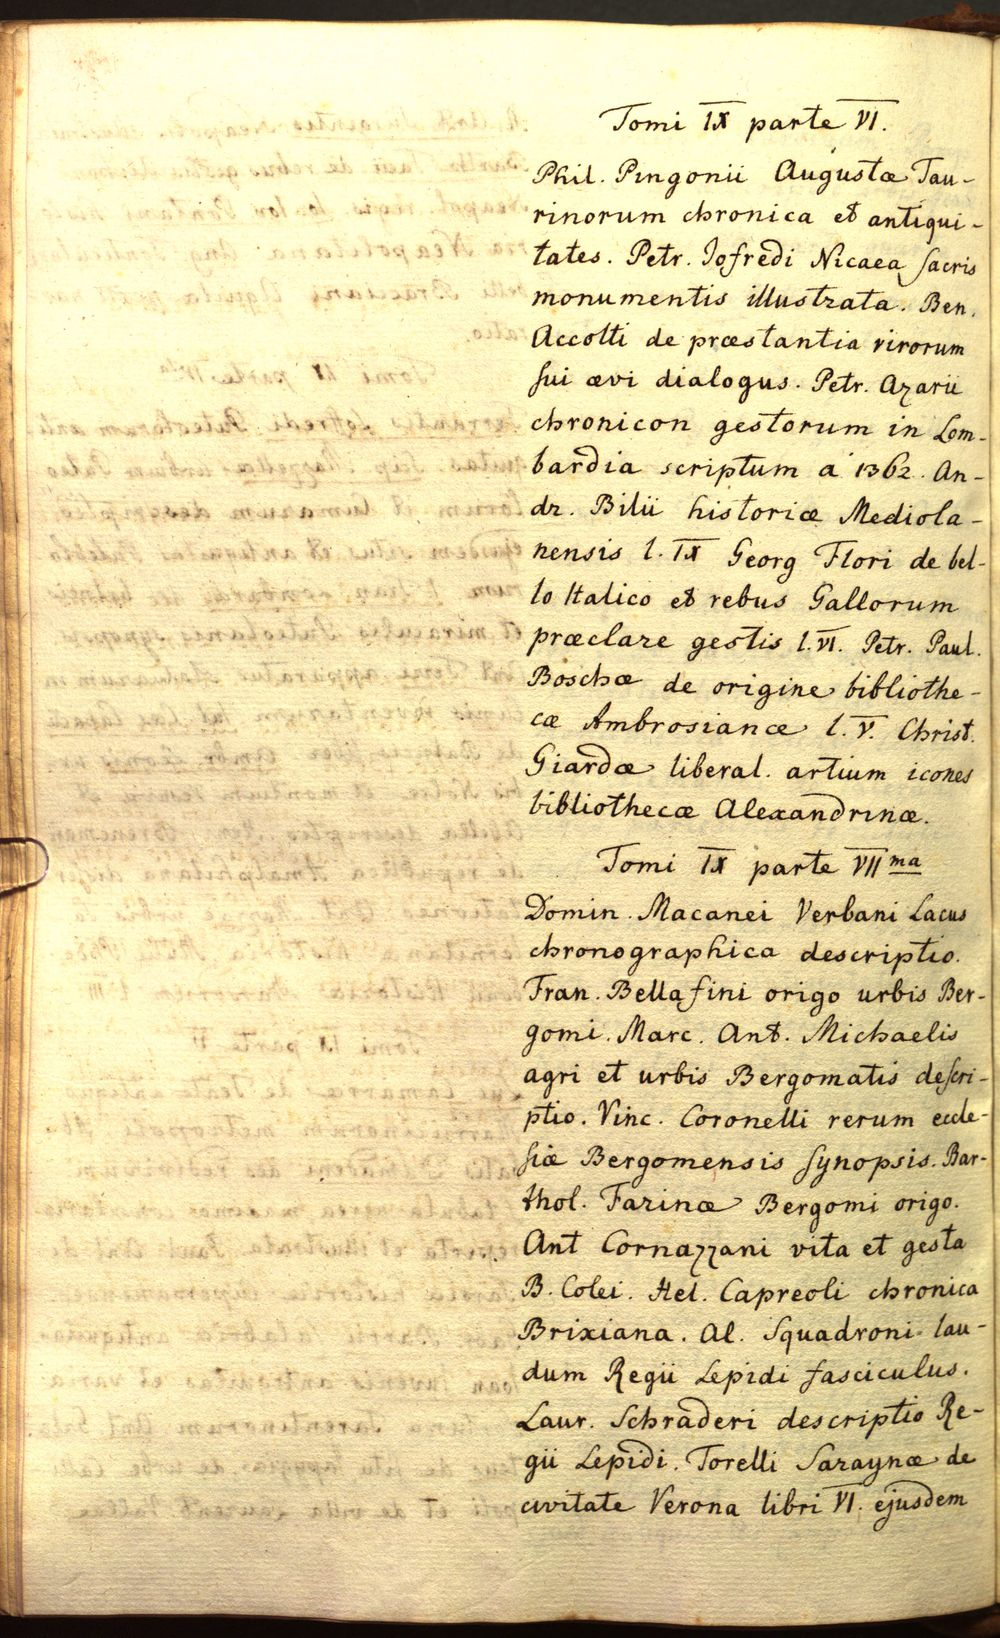 Tomi IX parte VI.
Phil. Pingonii Augustæ Tau-
rinorum chronica et antiqui-
tates. Petr. Jofredi Nicaea sacris
monumentis illustrata. Ben.
Accolti de præstantia virorum
sui ævi dialogus. Petr. Azarii
chronicon gestorum in Lom-
bardia scriptum a 1362. An-
dr. Bilii historiæ Mediola-
nensis l. IX Georg Flori de bel-
lo Italico et rebus Gallorum
præclare gestis l. VI. Petr. Paul.
Boschæ de origine bibliothe-
cæ Ambrosianæ l. V. Christ.
Giardæ liberal. artium icones
bibliothecæ Alexandrinæ.
Tomi IX parte VII ma
Domin. Macanei Verbani Lacus
chronographica descriptio.
Fran. Bellafini origo urbis Ber-
gomi. Marc. Ant. Michaelis
agri et urbis Bergomatis descri-
ptio. Vinc. Coronelli rerum eccle-
siæ Bergomensis synopsis. Bar-
thol. Farinæ Bergomi origo.
Ant Cornazzani vita et gesta
B. Colei. Hel. Capreoli chronica
Brixiana. Al. Squadroni lau-
dum Regii Lepidi fasciculus.
Laur. Schraderi descriptio Re-
gii Lepidi. Torelli Saraynæ de
civitate Verona libri VI. ejusdem